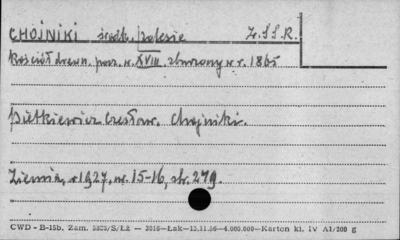 CHOJNIKI środk. polesie Z.S.S.R.
Kościół drewn. par. w. XVIII, zburzony w r. 1865
Dutkiewicz Czesław. Chojniki.
Ziemia, r. 1927, nr. 15-16, str. 249.
CWD - B-15b. Zam. 5823/S/Łż — 2016—Łak—13.11.56—4.000.000—Karton kl. IV A1/200 g